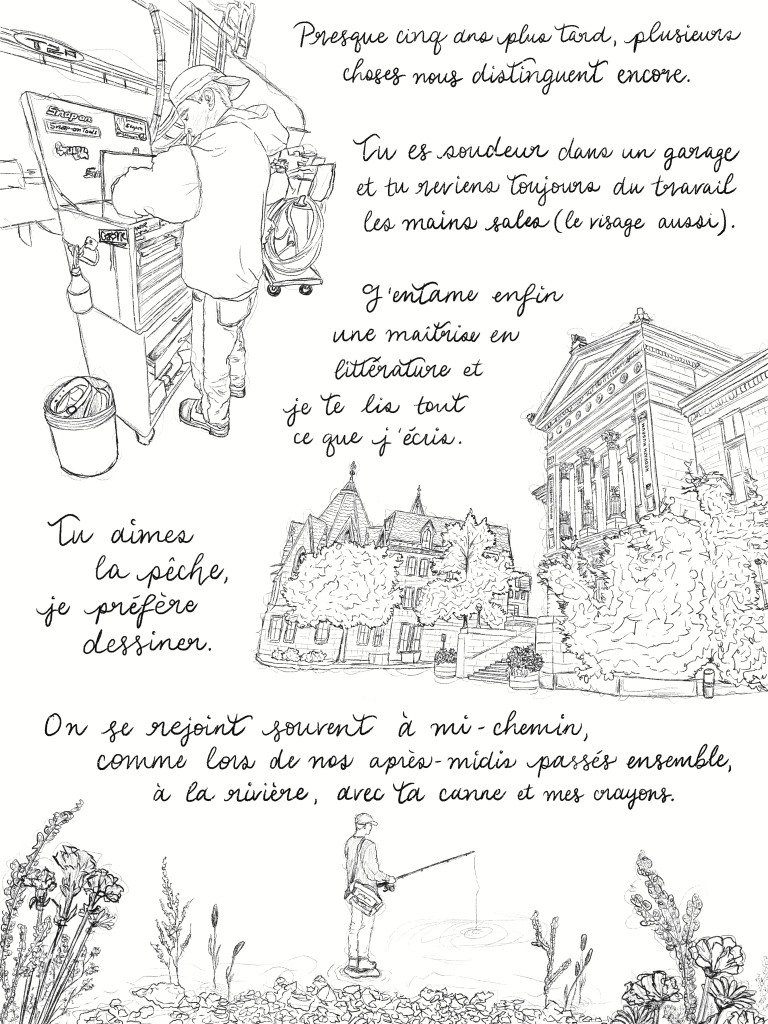 Presque cinq ans plus tard, plusieurs
choses nous distinguent encore.
Snap-on
Snap-on Tools
Tu es soudeur dans un garage
et tu reviens toujours du travail
les mains sales (le visage aussi).
J'entame enfin
une maîtrise en
littérature et
je te lis tout
ce que j'écris.
Tu aimes
la pêche,
je préfère
dessiner.
On se rejoint souvent à mi-chemin,
comme lors de nos après-midis passés ensemble,
à la rivière, avec ta canne et mes crayons.